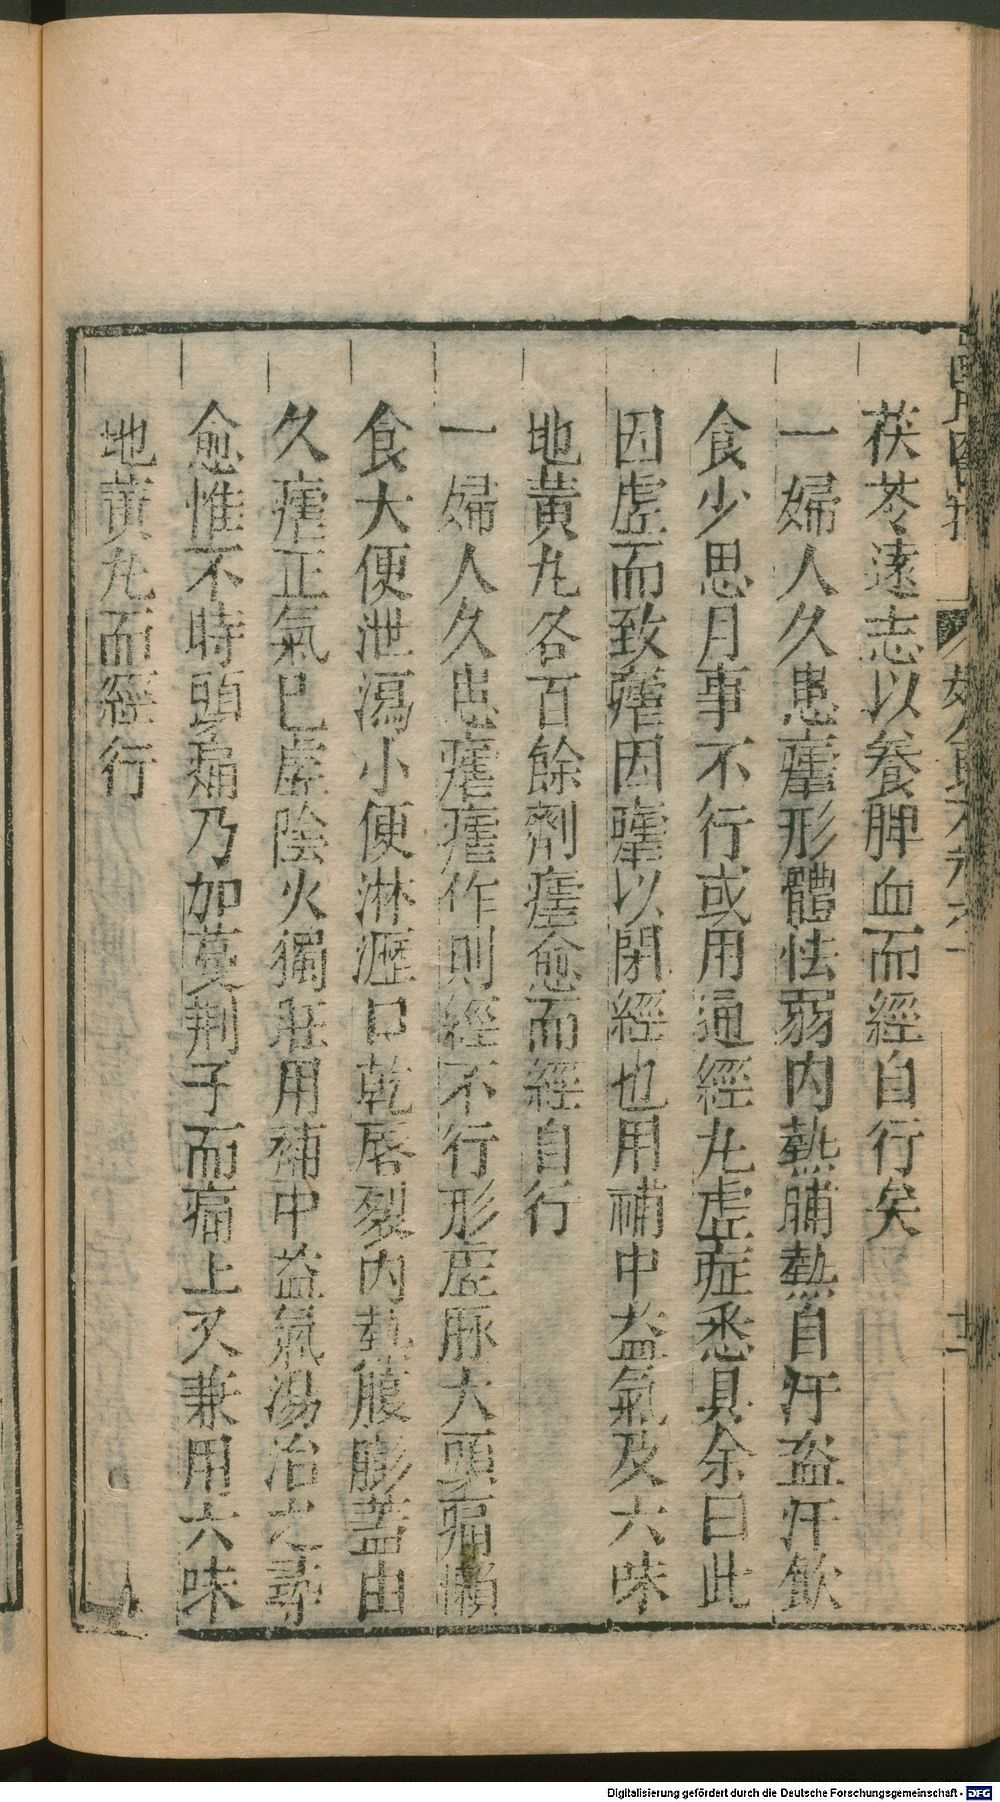 茯苓遠志以養脾血而經自行矣
一婦人久患瘧形體怯弱内熱脯熱自汗盗汗飲
食少思月事不行或用通經丸虚症悉具余曰此
因虚而致瘧因瘧以閉經也用補中益氣及六味
地黄丸各百餘劑瘧愈而經自行
一婦人久患瘧瘧作則經不行形虚脉大頭痛懶
食大便泄瀉小便淋瀝口乾唇裂内熱腹膨蓋由
久瘧正氣已虚陰火獨旺用補中益氣湯治之尋
愈惟不時頭痛乃加蔓荆子而痛上又兼用六味
地黄丸而經行
Digitalisierung gefördert durch die Deutsche Forschungsgemeinschaft - DFG